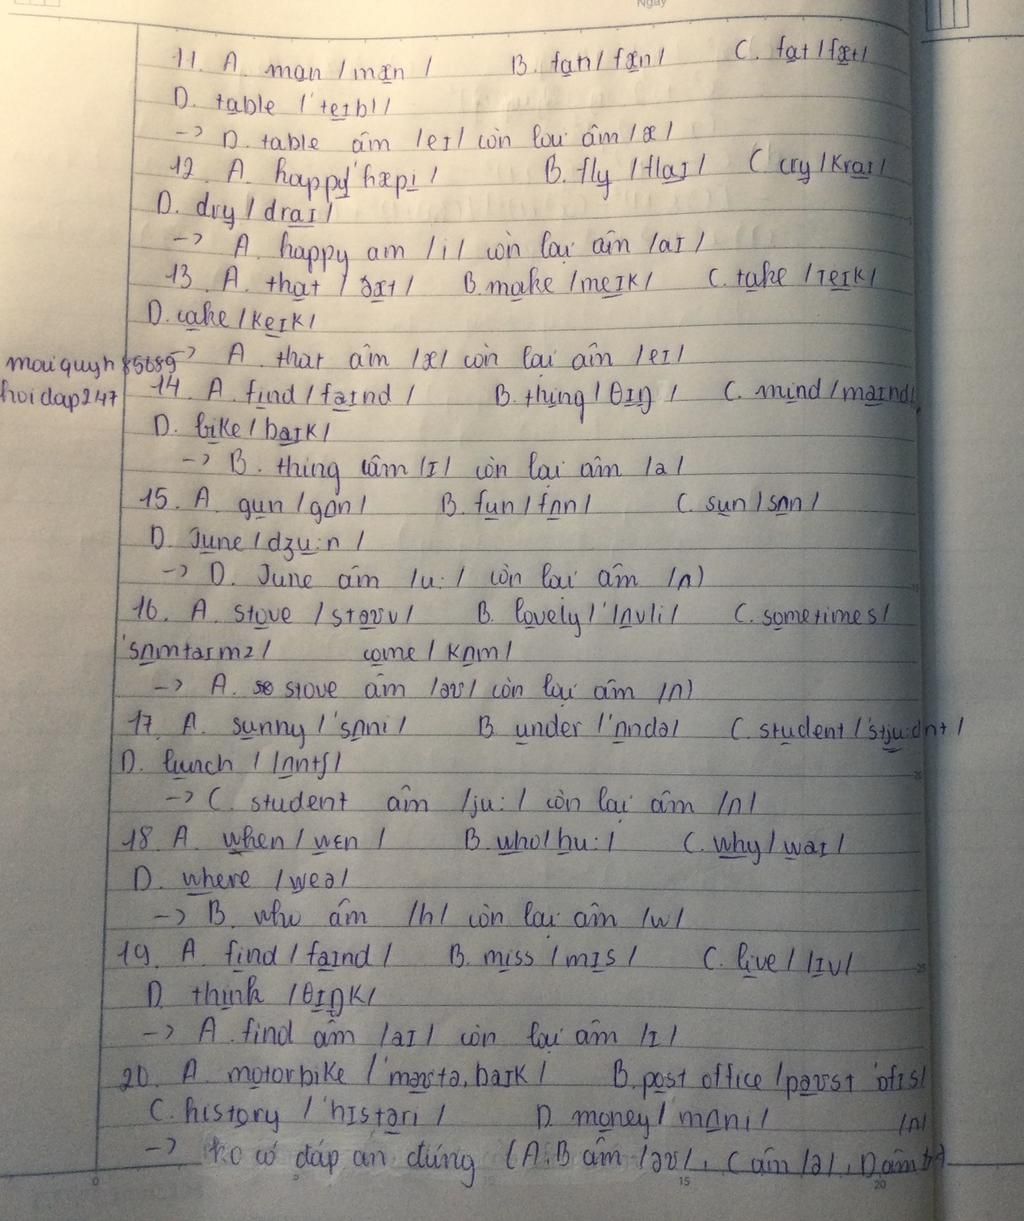 Ngày
11. A. man /mæn / B. fan / fæn/ C. fat /fæt/
D. table /'teɪbl/
-> D. table âm /eɪ/ còn lại âm /æ/
12. A. happy 'hæpɪ / B. fly /flaɪ/ C cry /Kraɪ/
D. dry / draɪ/
-> A. happy am /i/ còn lại âm /aɪ/
13. A. that / ðæt/ B. make /meɪK/ C. take /TeɪK/
D. cake /KeɪK/
-> A that âm /æ/ còn lại âm /eɪ/
maiquynh85685
hoidap247
14. A. find / faɪnd / B. thing / θɪŋ / C. mind /maɪnd/
D. bike / baɪK/
-> B. thing âm /ɪ/ còn lại âm /a/
15. A. gun /gʌn/ B. fun / fʌn/ C. sun / sʌn /
D. June / dʒu:n /
-> D. June âm /u: / còn lại âm /ʌ)
16. A. stove / stəʊv/ B. lovely / 'lʌvli/ C. sometimes/
'sʌmtaɪmz/ come / Kʌm/
-> A. stove âm /əʊ/ còn lại âm /ʌ)
17. A. sunny / 'sʌni / B under / 'ʌndə/ C. student / 'stju:dnt /
D. lunch / lʌntʃ/
-> C. student âm /ju: / còn lại âm /ʌ/
18. A. when / wɛn / B. who / hu: / C. why / waɪ /
D. where /weə/
-> B. who âm /h/ còn lại âm /w/
19. A find / faɪnd / B. miss / mɪs / C. live / lɪv/
D. think /θɪŋK/
-> A. find âm /aɪ/ còn lại âm /ɪ/
20. A. motorbike / 'məʊtə,baɪK / B. post office /pəʊst 'ɒfɪs/
C. history / 'hɪstəri / D. money / 'mʌnɪ/
-> ko có đáp án đúng (A,B âm /əʊ/, C âm /ə/, D âm /ʌ/
0 15 20